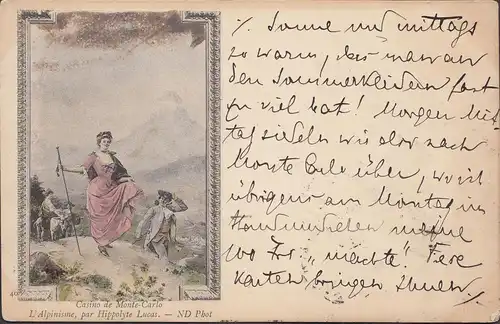 /. Sonne und mittags
so warm, dass man an
den Sommerkleidern fast
zu viel hat! Morgen Mit
tag siedeln wir aber nach
Monte Carlo über, wo ich
übrigens am Montag im
Handumdrehen meine
100 Frs „machte“.
Karten bringen Ihnen
Casino de Monte-Carlo
L'Alpinisme, par Hippolyte Lucas. — ND Phot